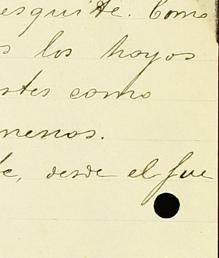 esquite. Como
s los hoyos
rtes como
menos.
e, desde el fue